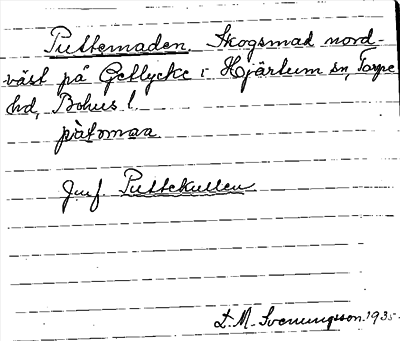 Puttemaden. Skogsmad nord-
väst på Getlycke i Hjärtum sn, Torpe
hd, Bohus l.
pùtǝmaa
Jmf. Puttekullen
L. M. Svenungsson 1935.